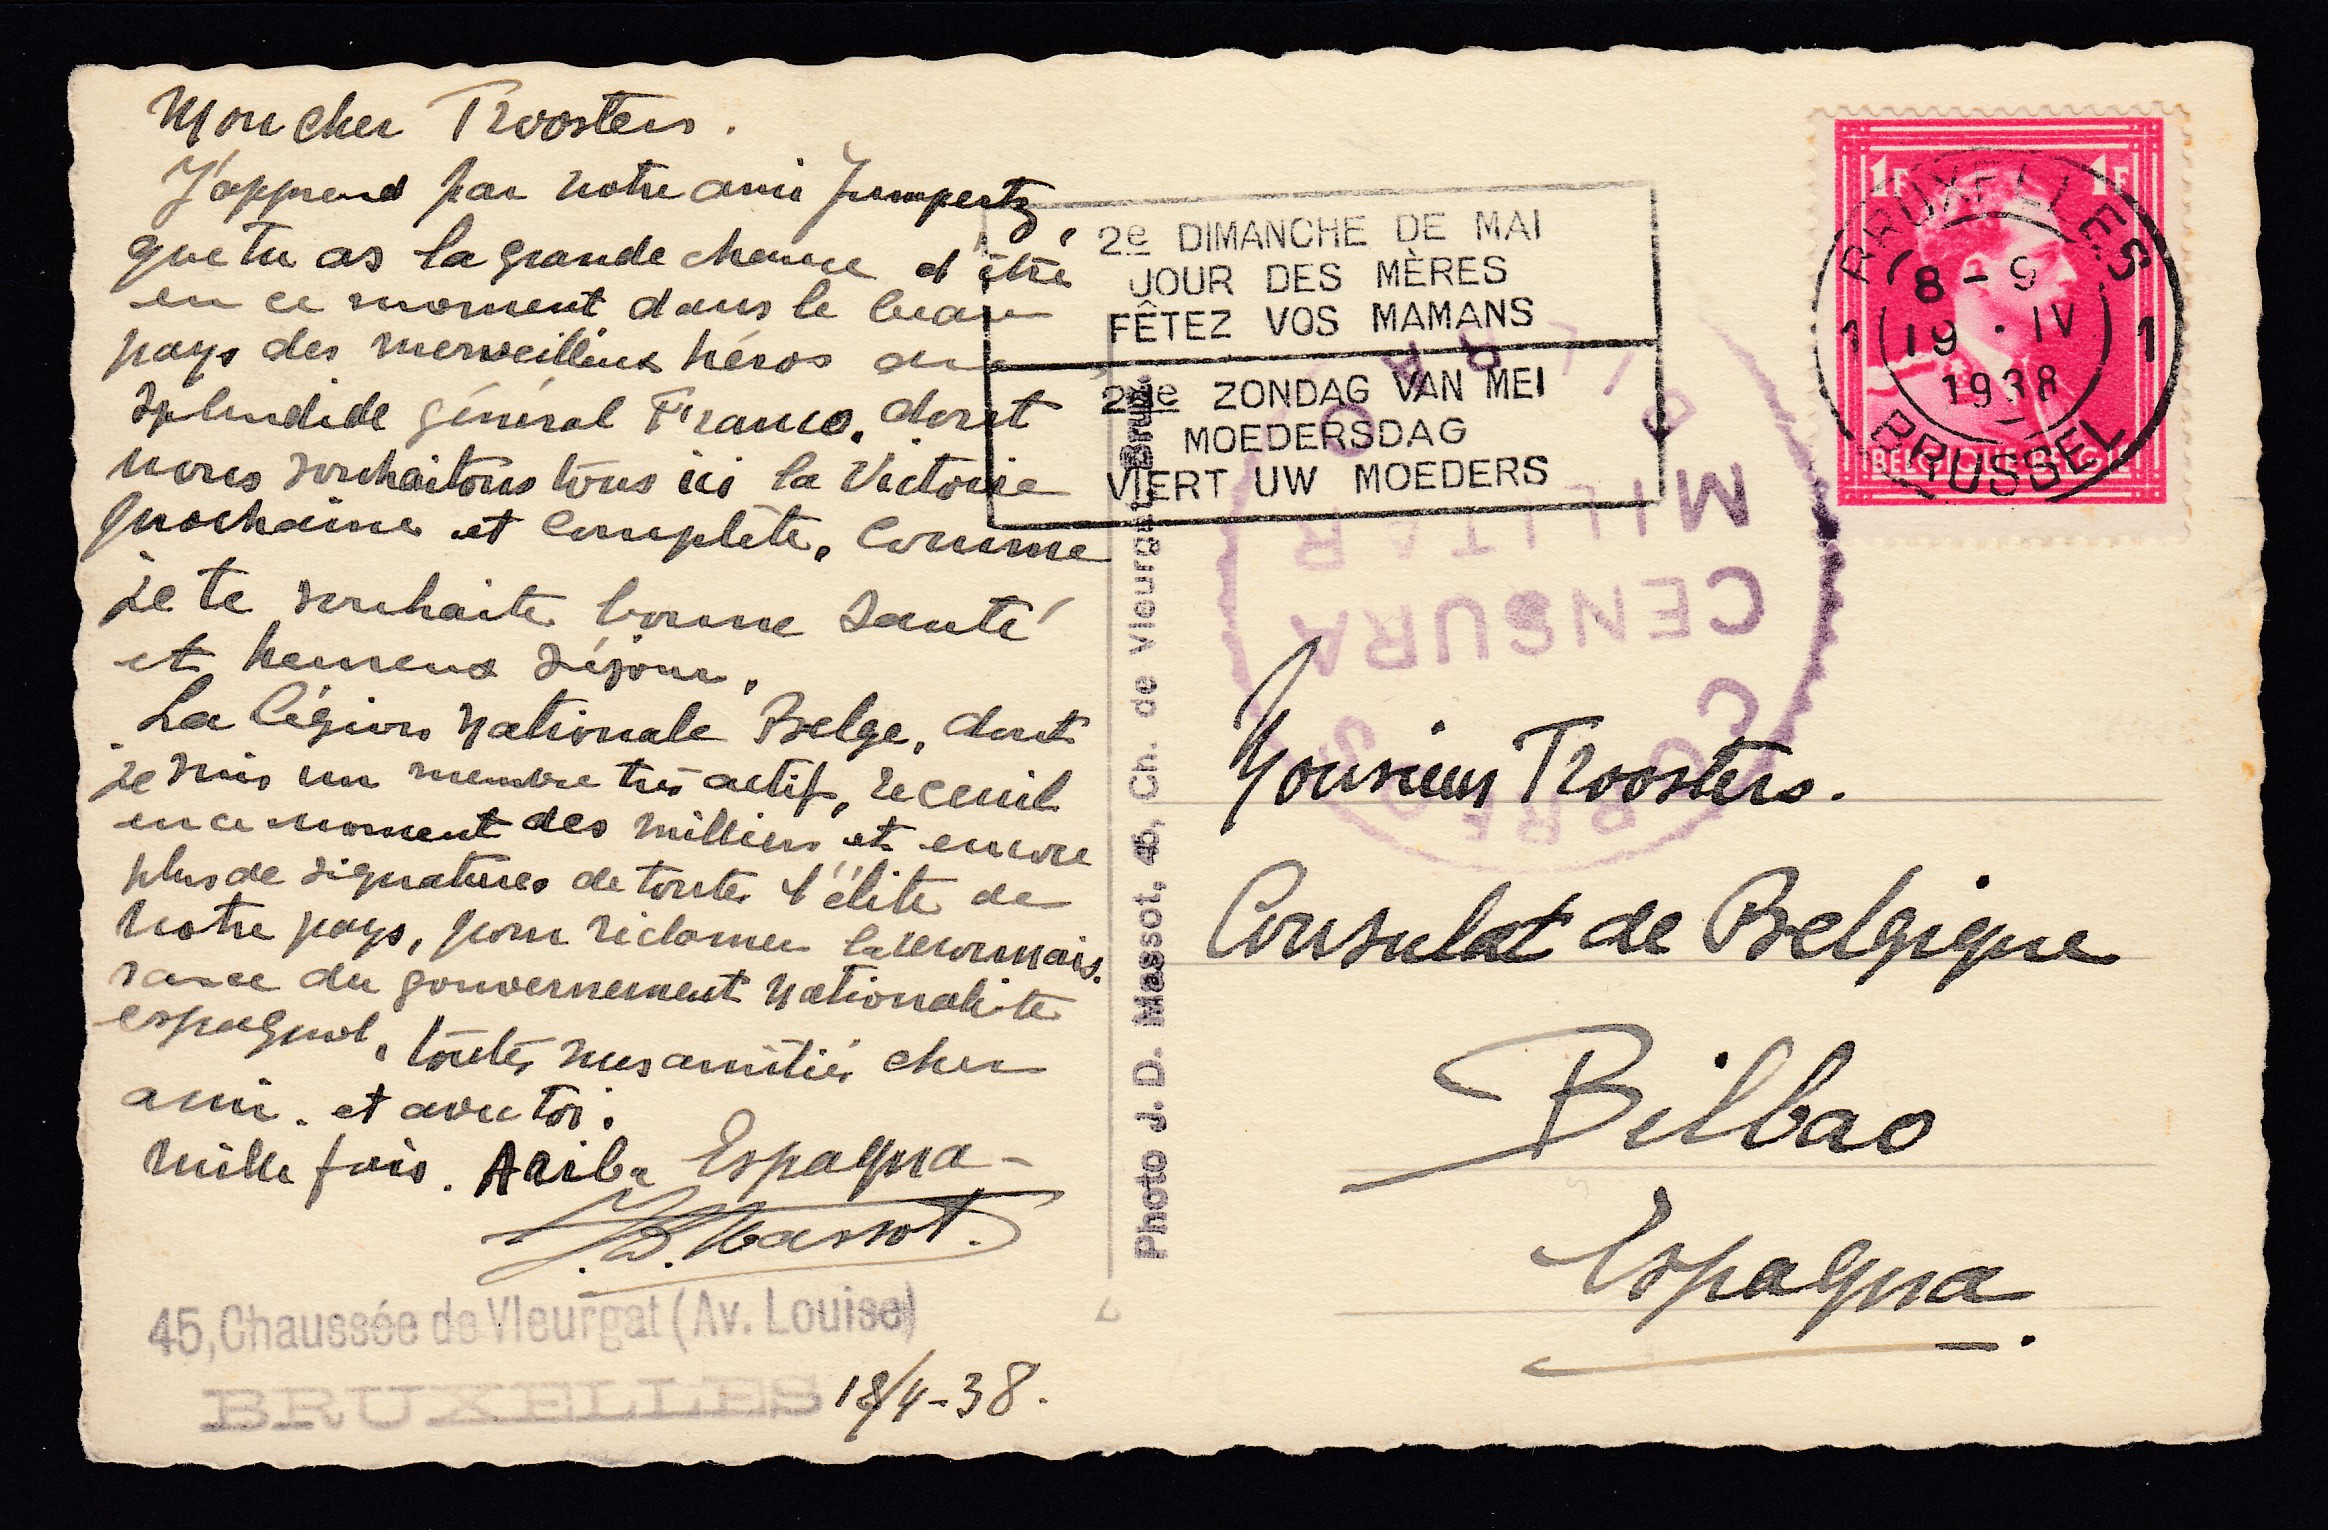 Mon cher Troosters.
J'apprend par notre ami Jumpertz,
que tu as la grande chance d'être
en ce moment dans le beau
pays des merveilleux héros du
splendide général Franco, dont
nous souhaitons tous ici la Victoire
prochaine et complète, comme
je te souhaite bonne santé
et heureux séjour.
La Légion Nationale Belge, dont
je suis un membre très actif, receuil
en ce moment des milliers et encore
plus de signatures de toute l'élite de
notre pays, pour réclamer la reconnais-
sance du gouvernement nationaliste
espagnol, toutes mes amitiés cher
ami. et avec toi.
mille fois. Ariba Espagna -
J.D. Massot.
45, Chaussée de Vleurgat (Av. Louise)
BRUXELLES
18/4-38.
Photo J. D. Massot, 45, Ch. de Vleurgat, Brux.
2e DIMANCHE DE MAI
JOUR DES MÈRES
FÊTEZ VOS MAMANS
2de ZONDAG VAN MEI
MOEDERSDAG
VIERT UW MOEDERS
1F 1F
BELGIQUE-BELGIE
BRUXELLES
1 1
8-9
19 · IV
1938
BRUSSEL
CORREOS
CENSURA
MILITAR
Monsieur Troosters.
Consulat de Belgique
Bilbao
Espagna.